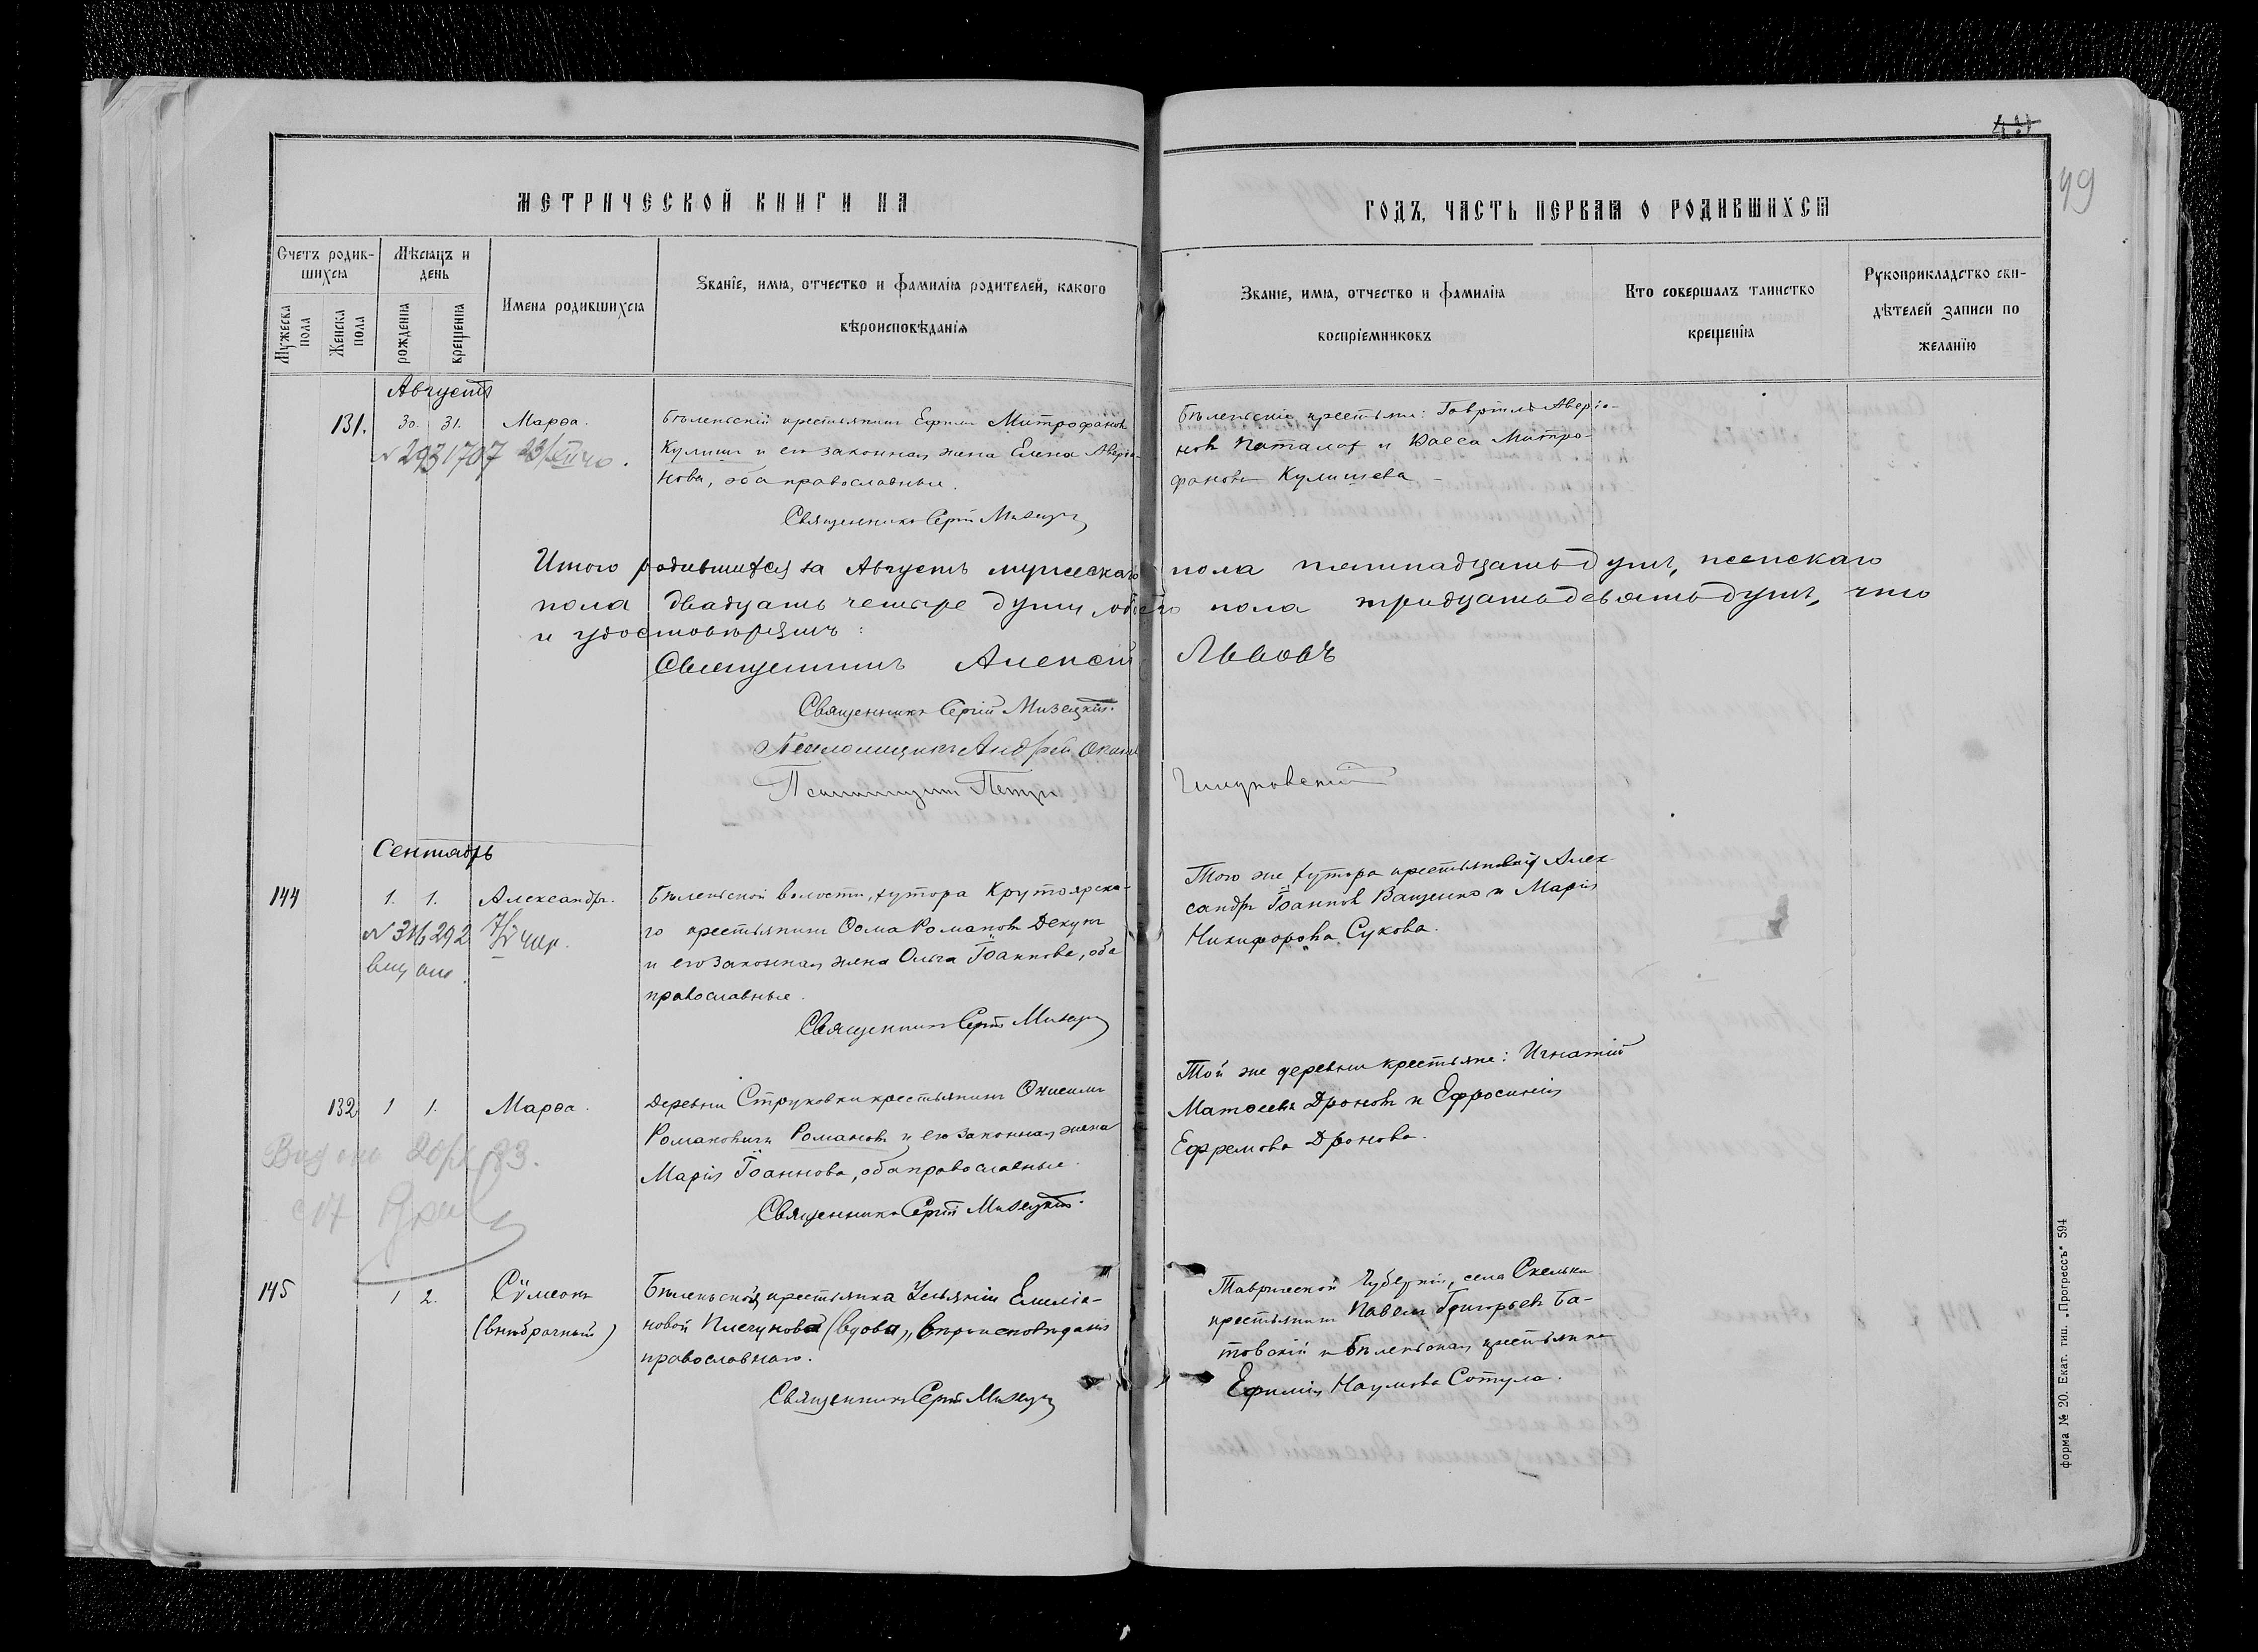 49
МЕТРИЧЕСКОЙ КНИГИ НА
ГОДЪ, ЧАСТЬ ПЕРВАЯ О РОДИВШИХСЯ
Счетъ родив-
шихся
Мужеска
пола
Женска
пола
Мѣсяцъ и
день
рожденія
крещенія
Имена родившихся
Званіе, имя, отчество и фамилія родителей, какого
вѣроисповѣданія
Званіе, имя, отчество и фамилія
воспріемниковъ
Кто совершалъ таинство
крещенія
Рукоприкладство сви-
дѣтелей записи по
желанію
Августъ
131. 30. 31. Марѳа.
№ 2931707 23/XII 40.
Бѣленьскій крестьянинъ Ефимъ Митрофановъ
Кулишъ и его законная жена Елена Аверіа-
нова, оба православные.
Священникъ Сергій Мизецкій
Бѣленьскіе крестьяне: Гавріилъ Аверіа-
новъ Паталах и Васса Митро-
фанова Кулишева
Итого родившихся за Августъ мужескаго пола пятнадцать душъ, женскаго
пола двадцать четыре души, обоего пола тридцать девять душъ, что
и удостовѣряемъ:
Священникъ Алексій Львовъ
Священникъ Сергій Мизецкій.
Псаломщикъ Андрей
Псаломщикъ Петръ
Сентябрь
144 1. 1. Александръ.
№ 316292
Бѣленьской волости, хутора Крутоярска-
го крестьянинъ Ѳома Романовъ Декунъ
и его законная жена Ольга Іоаннова, оба
православные.
Священникъ Сергій Мизецкій
Того же хутора крестьяне Алек-
сандръ Іоанновъ Ващенко и Марія
Никифорова Сукова.
132 1 1. Марѳа.
Выдано 20/ 33.
Деревни Струковки крестьянинъ Онисимъ
Романовичъ Романовъ и его законная жена
Марія Іоаннова, оба православные.
Священникъ Сергій Мизецкій.
Той же деревни крестьяне: Игнатій
Матѳеевъ Дроновъ и Ефросинія
Ефремова Дронова.
145 1 2. Сѵмеонъ
(внѣбрачный)
Бѣленьской крестьянка Ульянія Емеліа-
новой Плечунова (вдова), вѣроисповѣданія
православнаго.
Священникъ Сергій Мизецкій
Таврической Губерніи, села Скельки
крестьянинъ Павелъ Григорьевъ Ба-
товскій и Бѣленьская крестьянка
Ефимія Наумова Сотула.
форма № 20. Екат. тип. „Прогрессъ“ 594